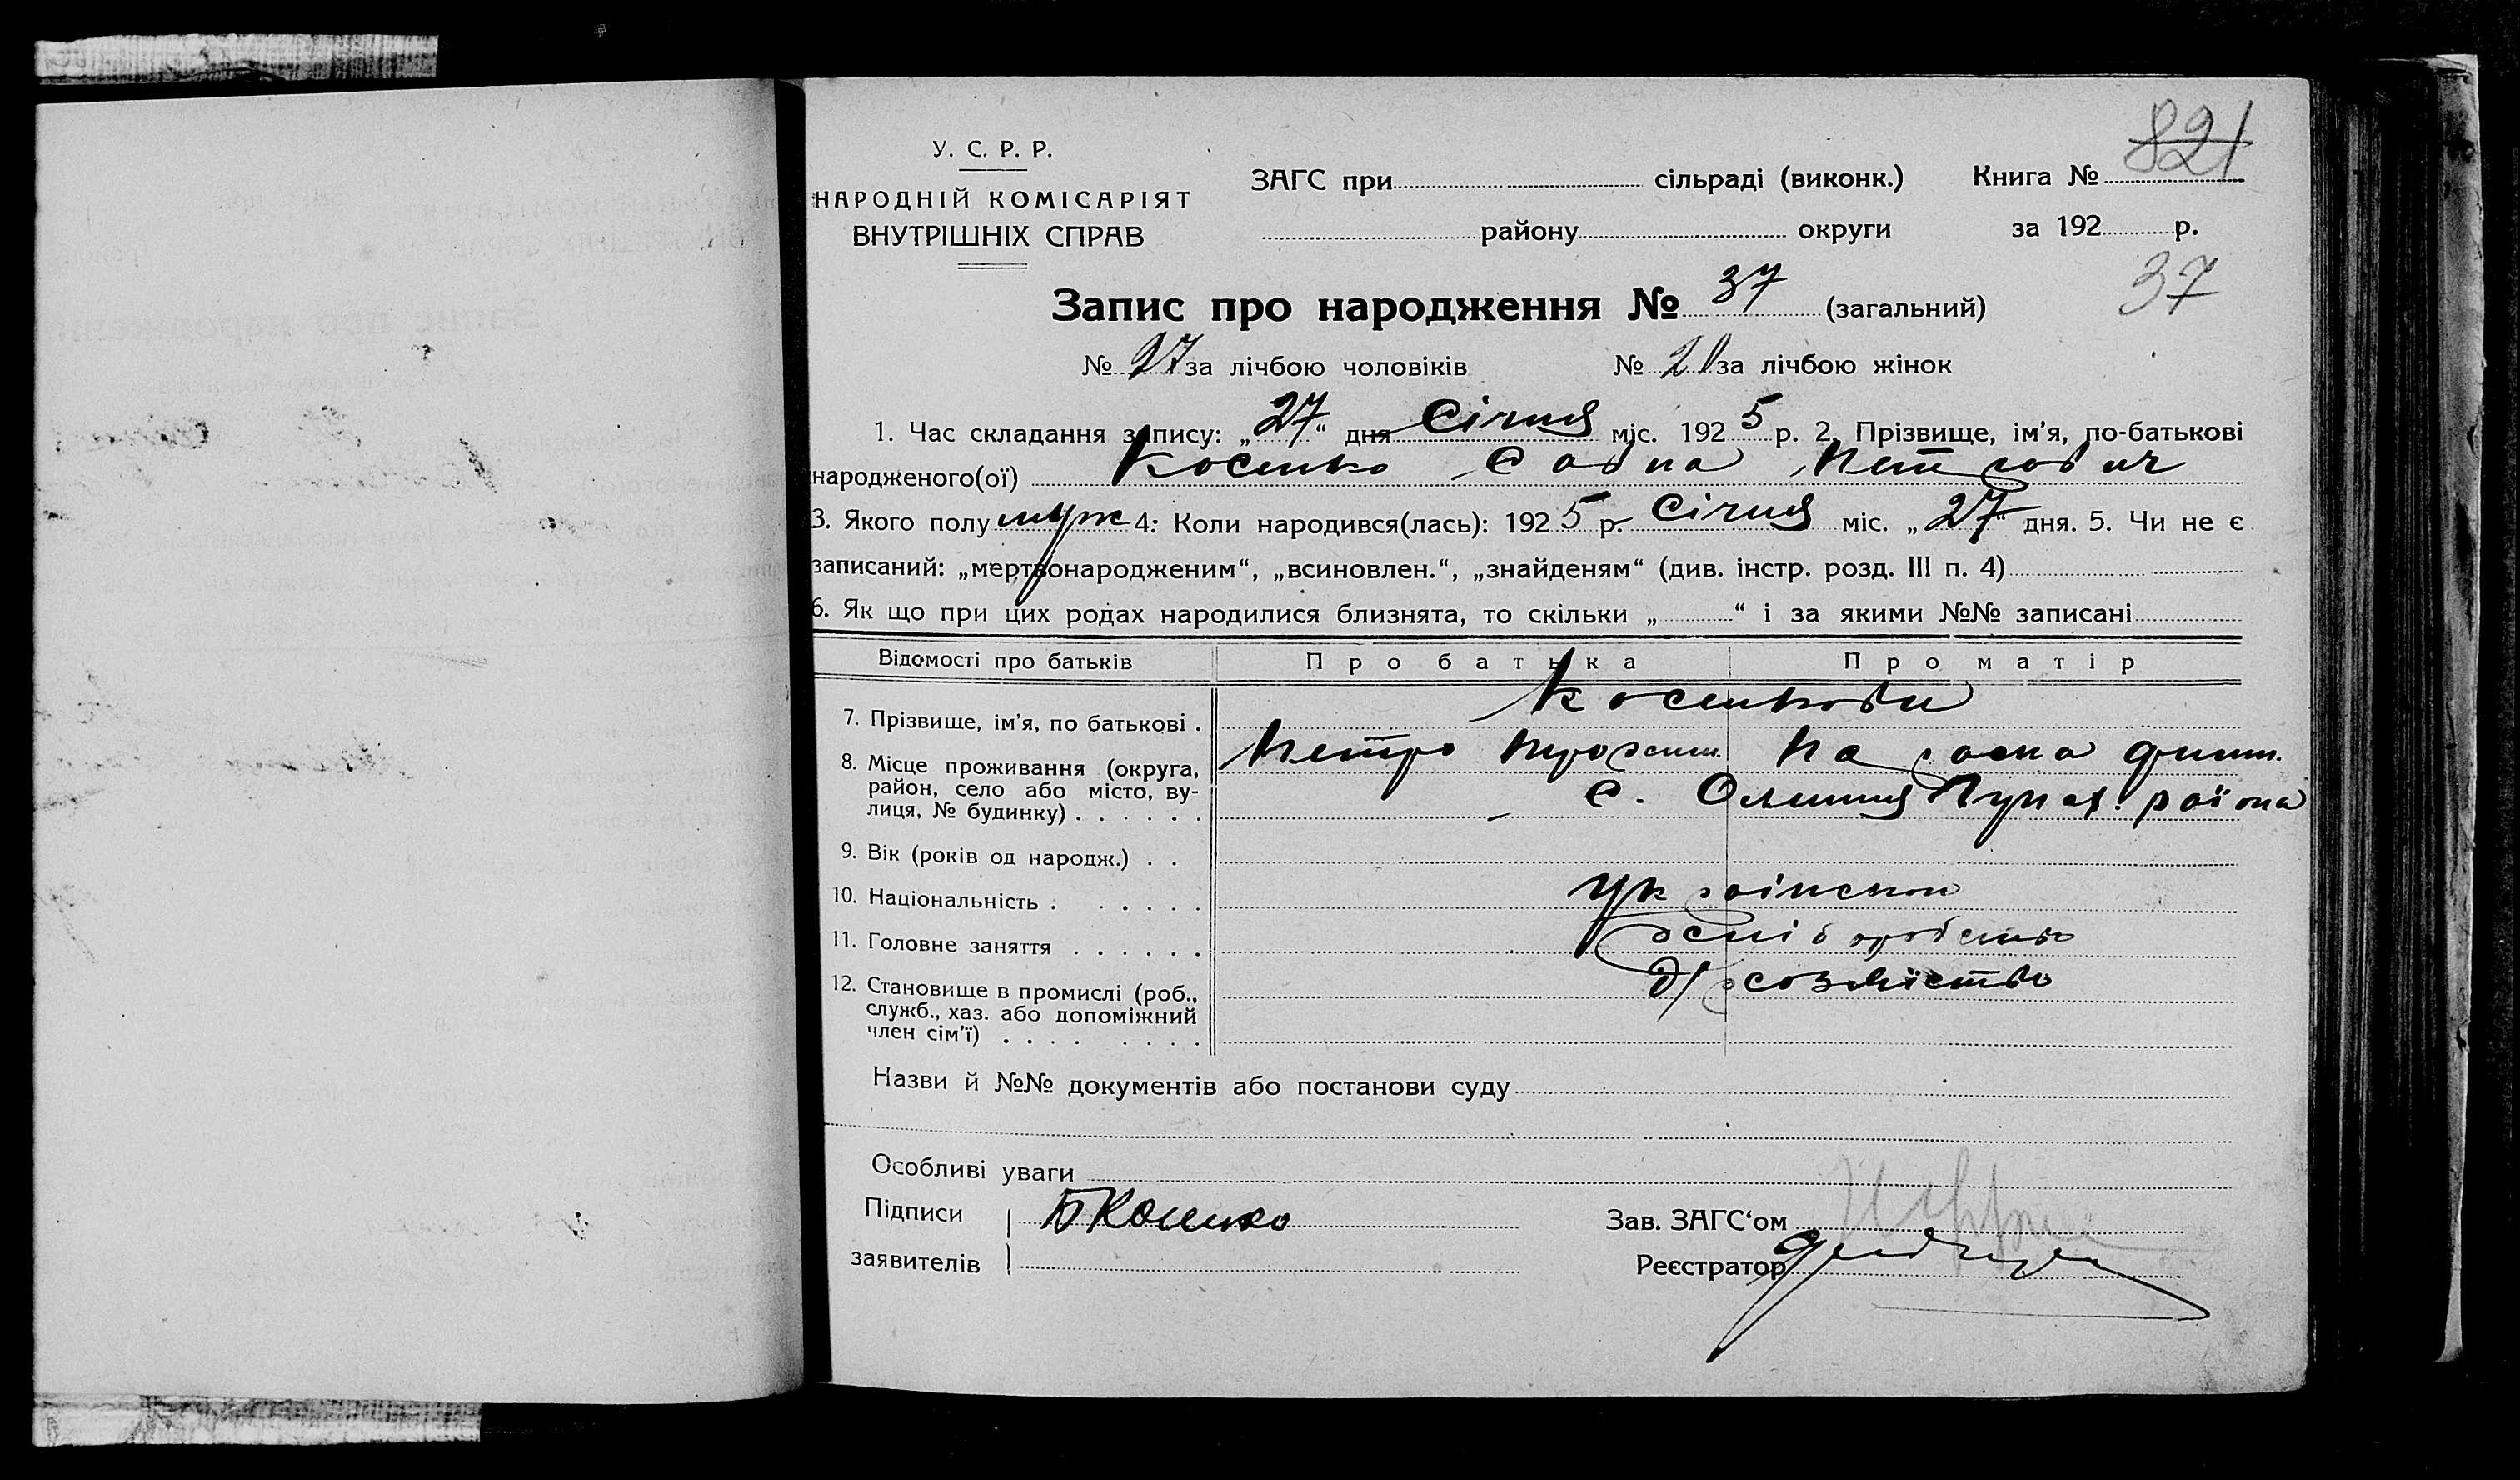 821
У. С. Р. Р.
НАРОДНІЙ КОМІСАРІЯТ
ВНУТРІШНІХ СПРАВ
ЗАГС при сільраді (виконк.) Книга №
району округи за 192 р.
Запис про народження № 37 (загальний) 37
№ 27 за лічбою чоловіків № за лічбою жінок
1. Час складання запису: „27“ дня Січня міс. 1925 р. 2. Прізвище, ім'я, по-батькові
народженого(ої) Косенко Петрович
3. Якого полу муж 4: Коли народився(лась): 1925 р. Січня міс. „27“ дня. 5. Чи не є
записаний: „мертвонародженим“, „всиновлен.“, „знайденям“ (див. інстр. розд. III п. 4)
6. Як що при цих родах народилися близнята, то скільки „ “ і за якими №№ записані
Відомості про батьків Про батька Про матір
7. Прізвище, ім'я, по батькові . Косенкови
8. Місце проживання (округа, Петро
район, село або місто, ву- района
лиця, № будинку) . . . . . .
9. Вік (років од народж.) . .
10. Національність . . . . . .
11. Головне заняття . . . . . .
12. Становище в промислі (роб.,
служб., хаз. або допоміжний
член сім'ї) . . . . . . . .
Назви й №№ документів або постанови суду
Особливі уваги
Підписи Косенко Зав. ЗАГС‘ом
заявителів Реєстратор